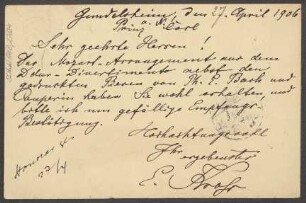 Gundelsheim, den 27 April 1906
Prinz Carl
Sehr geehrte Herren!
Das Mozart-Arrangement aus dem
Ddur-Divertimento nebst den
gedruckten Pieren von Ph. E. Bach und
Couperin haben Sie wohl erhalten, und
bitte ich um gefällige Empfangs-
Bestätigung.
Hochachtungsvoll
Ihr ergebenster
E.